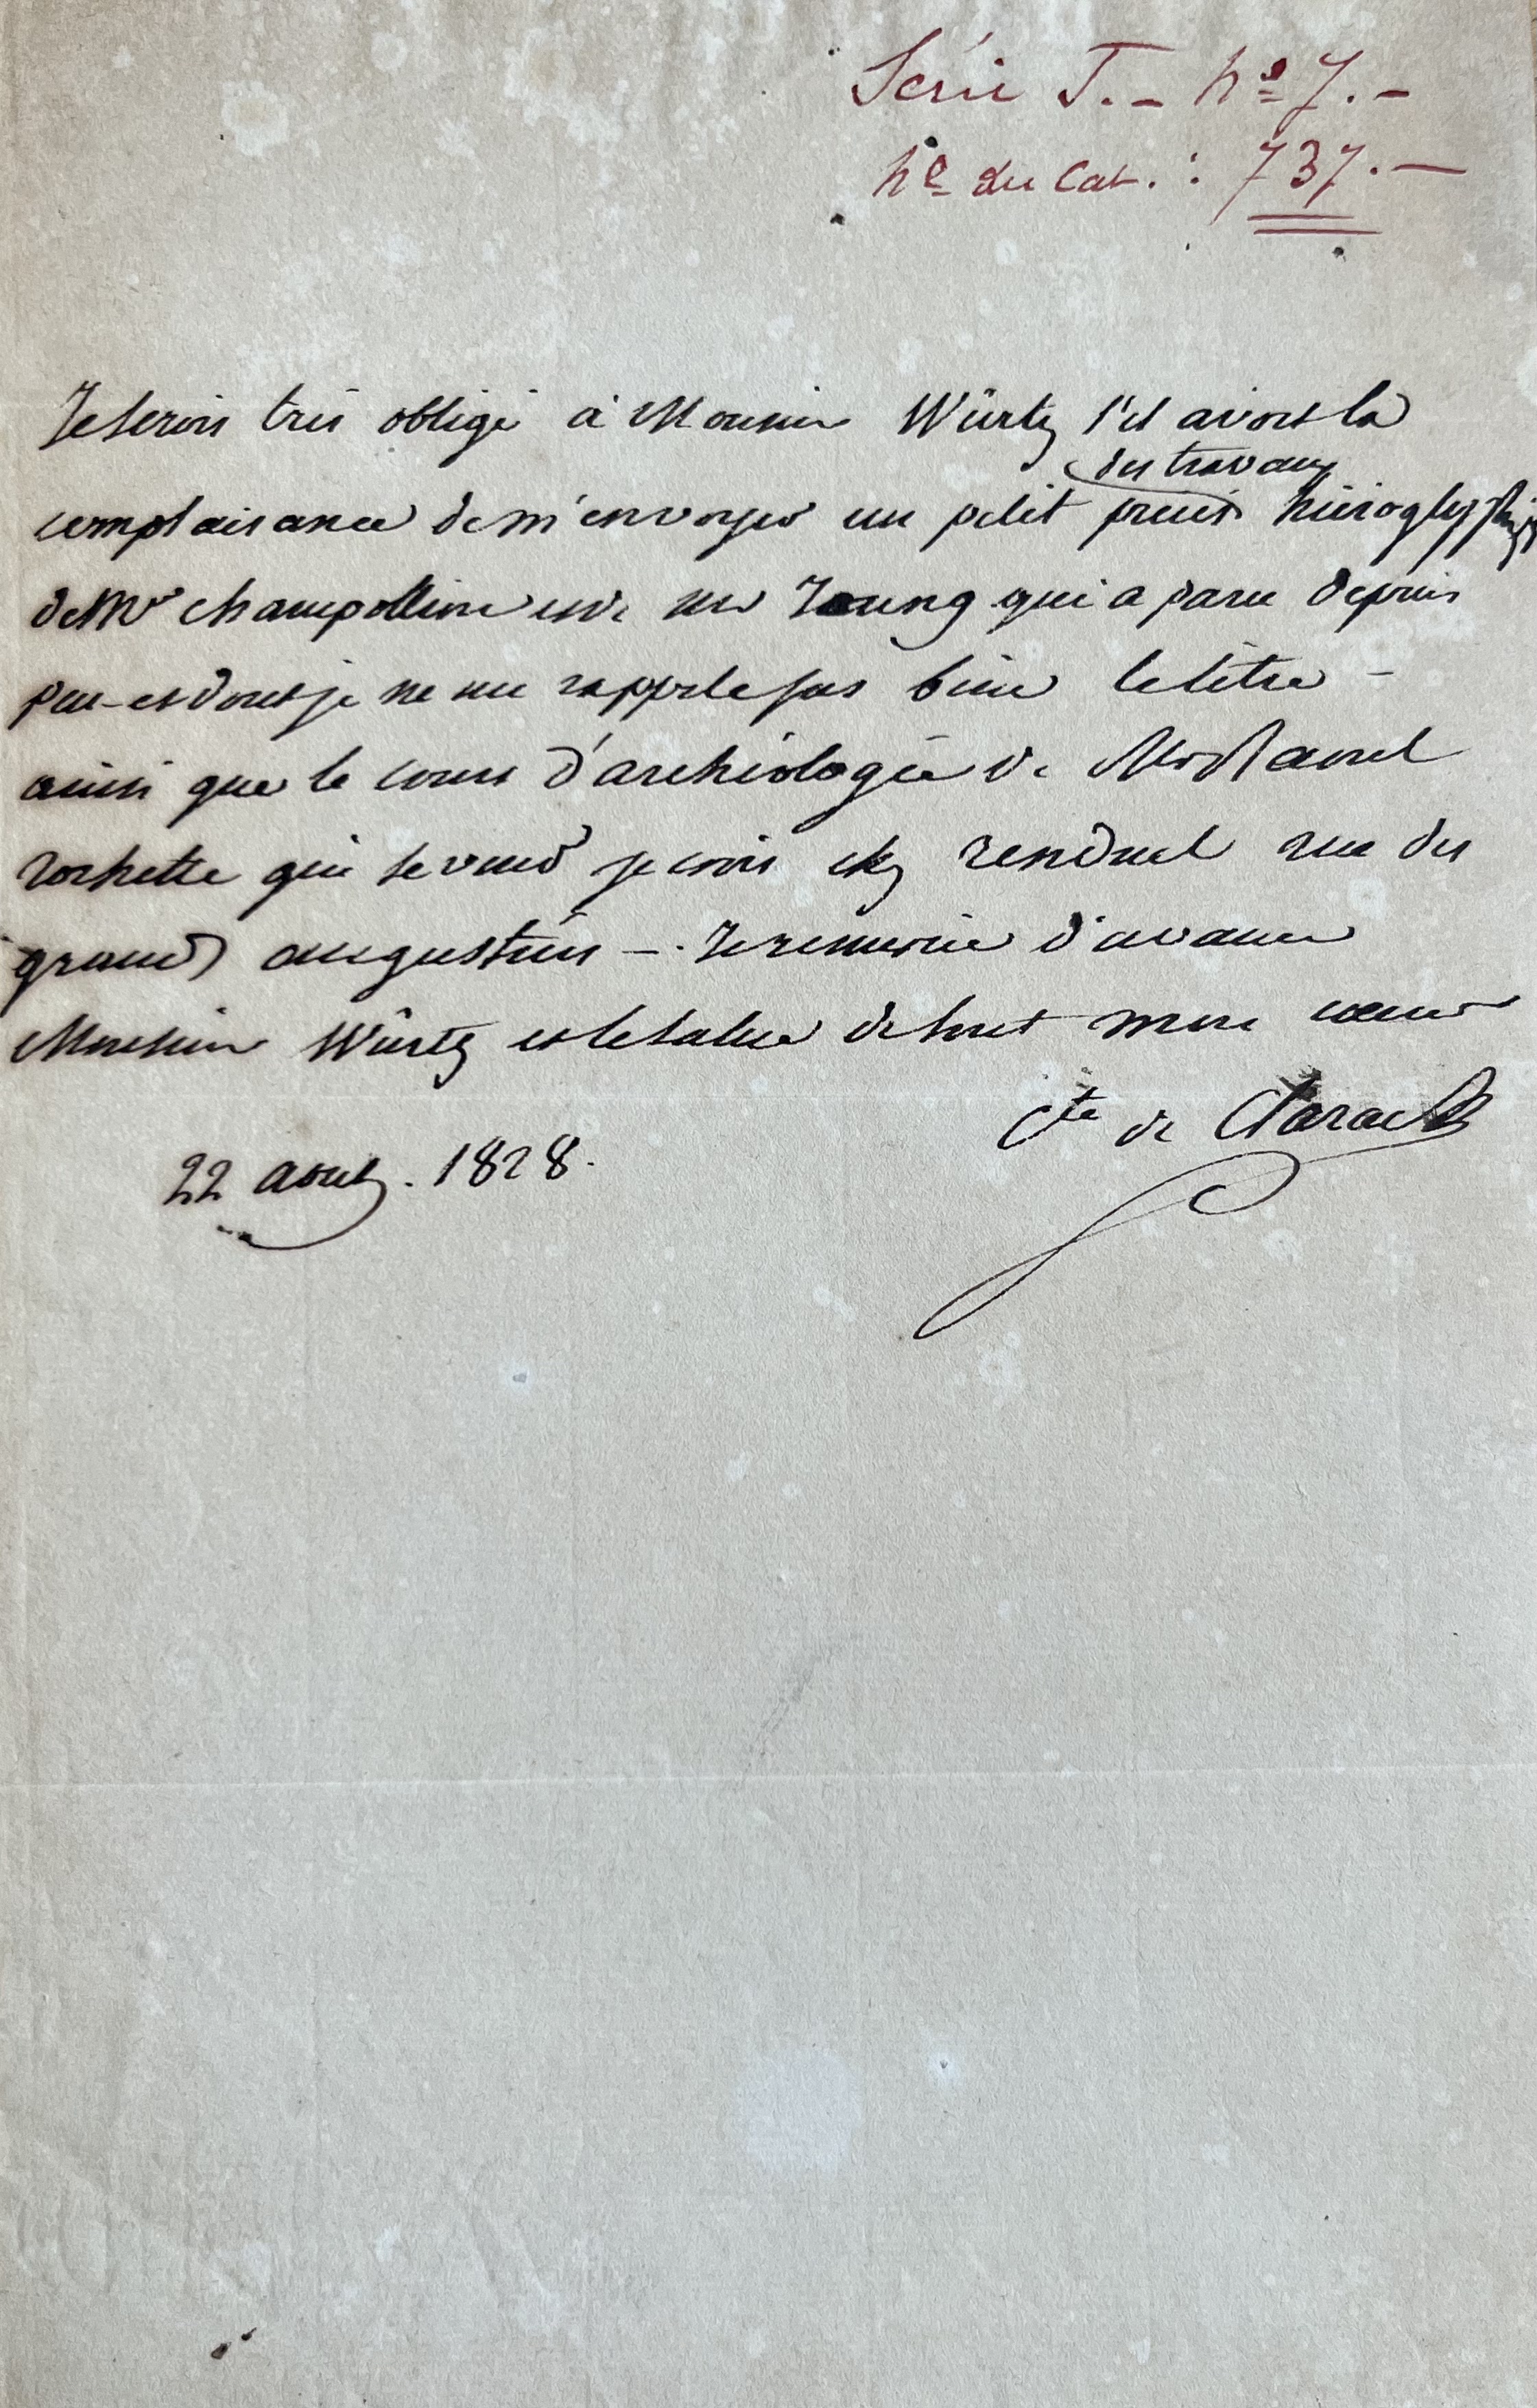 Série J. — nº 7. —
nº du Cat. : 737. —
Je serois très obligé à Monsieur Würtz s'il avoit la
des travaux
complaisance de m'envoyer un petit précis hiéroglyphiq
de Mr champollion et de mr Young qui a paru depuis
peu - et dont je ne me rappele pas bien le titre -
ainsi que le cours d'archéologie de Mr Raoul
rochette qui se vend je crois chez renduel rue des
grands augustins — . Je remercie d'avance
Monsieur Würtz et le salue de tout mon cœur
Cte de Clarac
22 aout . 1828 .